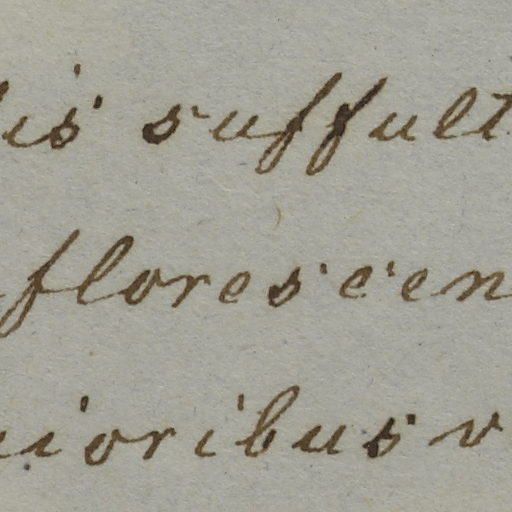 lis suffult
florescen
ioribus v